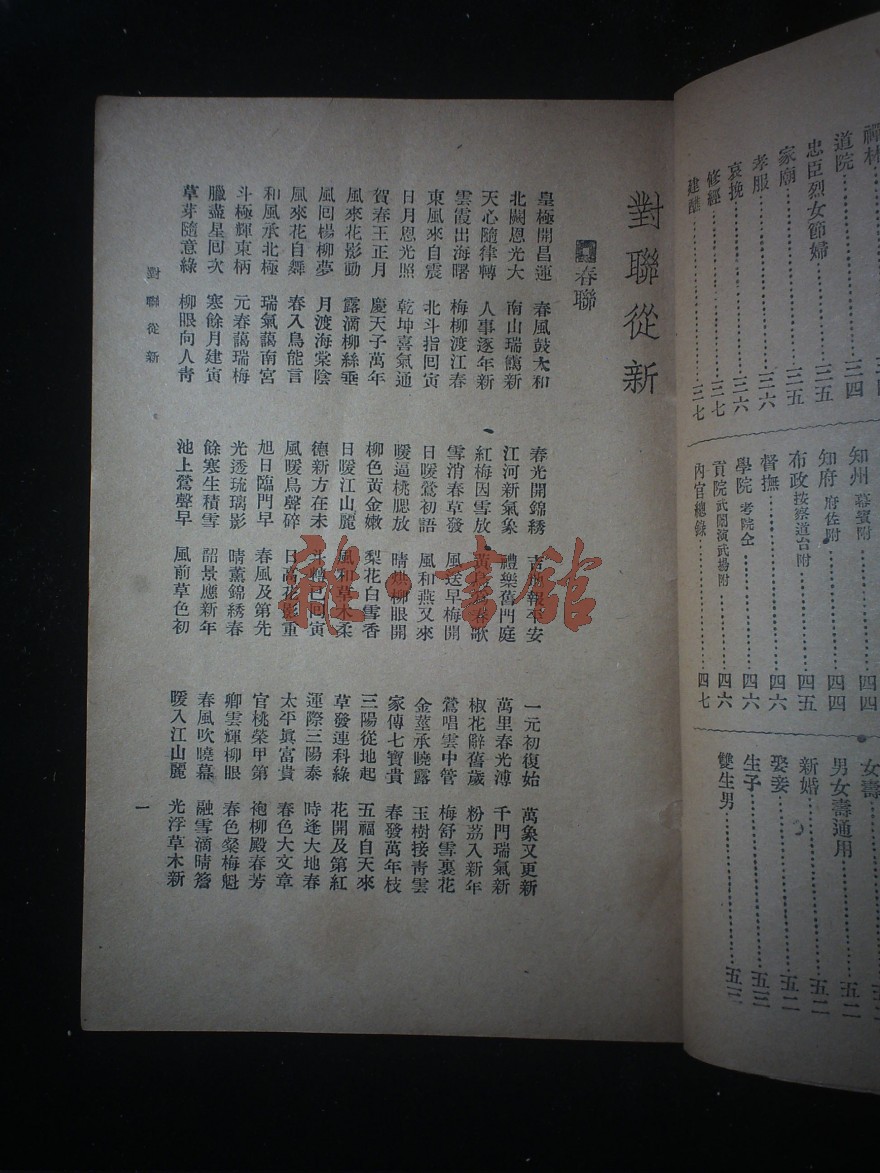 禪林
道院……三四
忠臣烈女節婦……三五
家廟……三五
孝服……三六
哀挽……三六
修經……三七
建醮……三七
知州 幕賓附……四四
知府 府佐附……四四
布政 按察道台附……四五
督撫……四六
學院 考院仝……四六
貢院 武闈演武場附……四六
內官總錄……四七
女壽
男女壽通用……五二
新婚……五二
娶妾……五二
生子……五三
雙生男……五三
對聯從新
春聯
皇極開昌運 春風鼓太和
北闕恩光大 南山瑞靄新
天心隨律轉 人事逐年新
雲霞出海曙 梅柳渡江春
東風來自震 北斗指囘寅
日月恩光照 乾坤喜氣通
賀春王正月 慶天子萬年
風來花影動 露滴柳絲垂
風回楊柳夢 月渡海棠陰
風來花自舞 春入鳥能言
和風承北極 瑞氣藹南宮
斗極輝東柄 元春藹瑞梅
臘盡星回次 寒餘月建寅
草芽隨意綠 柳眼向人靑
春光開錦綉 吉地報平安
江河新氣象 禮樂舊門庭
紅梅因雪放 黃鳥 春歌
雪消春草發 風送早梅開
日暖鶯初語 風和燕又來
暖逼桃腮放 晴烘柳眼開
柳色黃金嫩 梨花白雪香
日暖江山麗 風和草木柔
德新方在未 斗轉已回寅
風暖鳥聲碎 日高花影重
旭日臨門早 春風及第先
光透琉璃影 晴薰錦綉春
餘寒生積雪 韶景應新年
池上鶯聲早 風前草色初
一元初復始 萬象又更新
萬里春光溥 千門瑞氣新
椒花辭舊歲 粉荔入新年
鶯唱雲中管 梅舒雪裏花
金莖承曉露 玉樹接靑雲
家傳七寶貴 春發萬年枝
三陽從地起 五福自天來
草發連科綠 花開及第紅
運際三陽泰 時逢大地春
太平眞富貴 春色大文章
官桃榮甲第 袍柳殿春芳
卿雲輝柳眼 春色粲梅魁
春風吹曉幕 融雪滴晴簷
暖入江山麗 光浮草木新
對聯從新
一
雜·書館